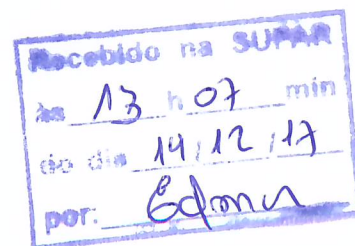 Recebido na SUPAR
às 13 h 07 min
do dia 14/12/17
por: Edma